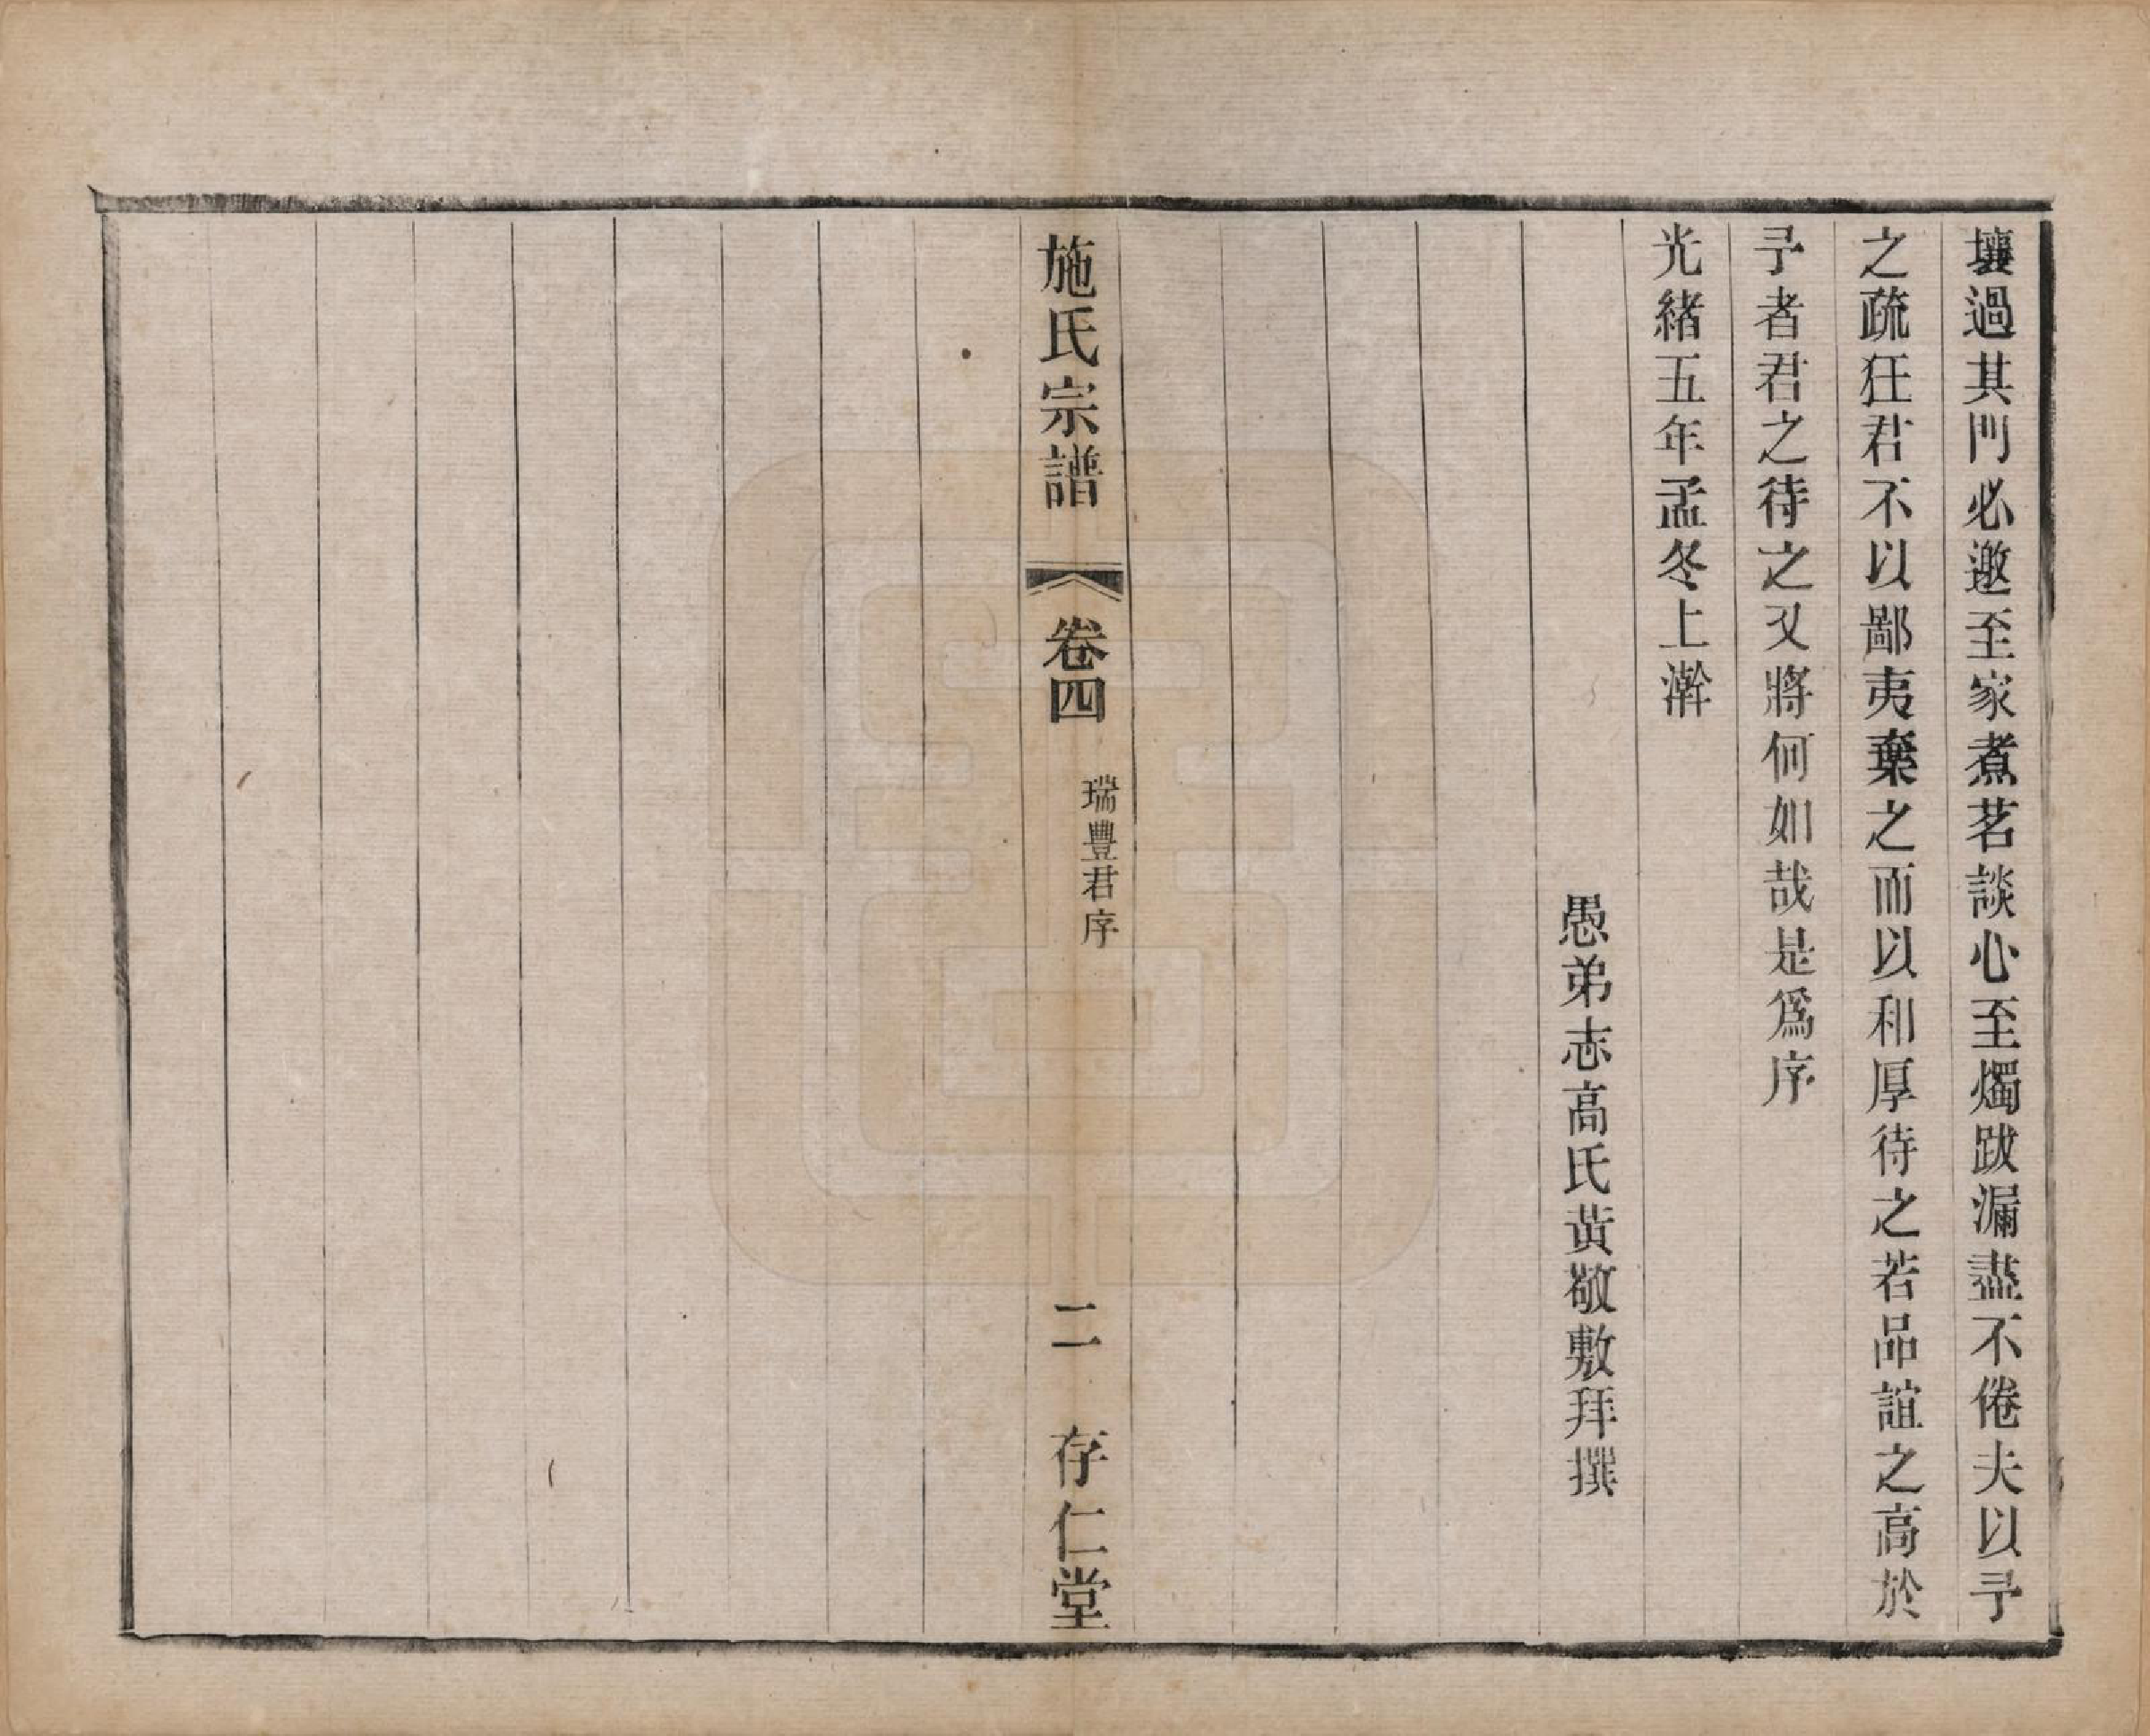 壤過其門必邀至家煮茗談心至燭跋漏盡不倦夫以予
之疏狂君不以鄙夷棄之而以和厚待之若品誼之高於
予者君之待之又將何如哉是爲序
光緒五年孟冬上澣
愚弟志高氏黃敬敷拜撰
施氏宗譜
卷四
瑞豐君序
二
存仁堂